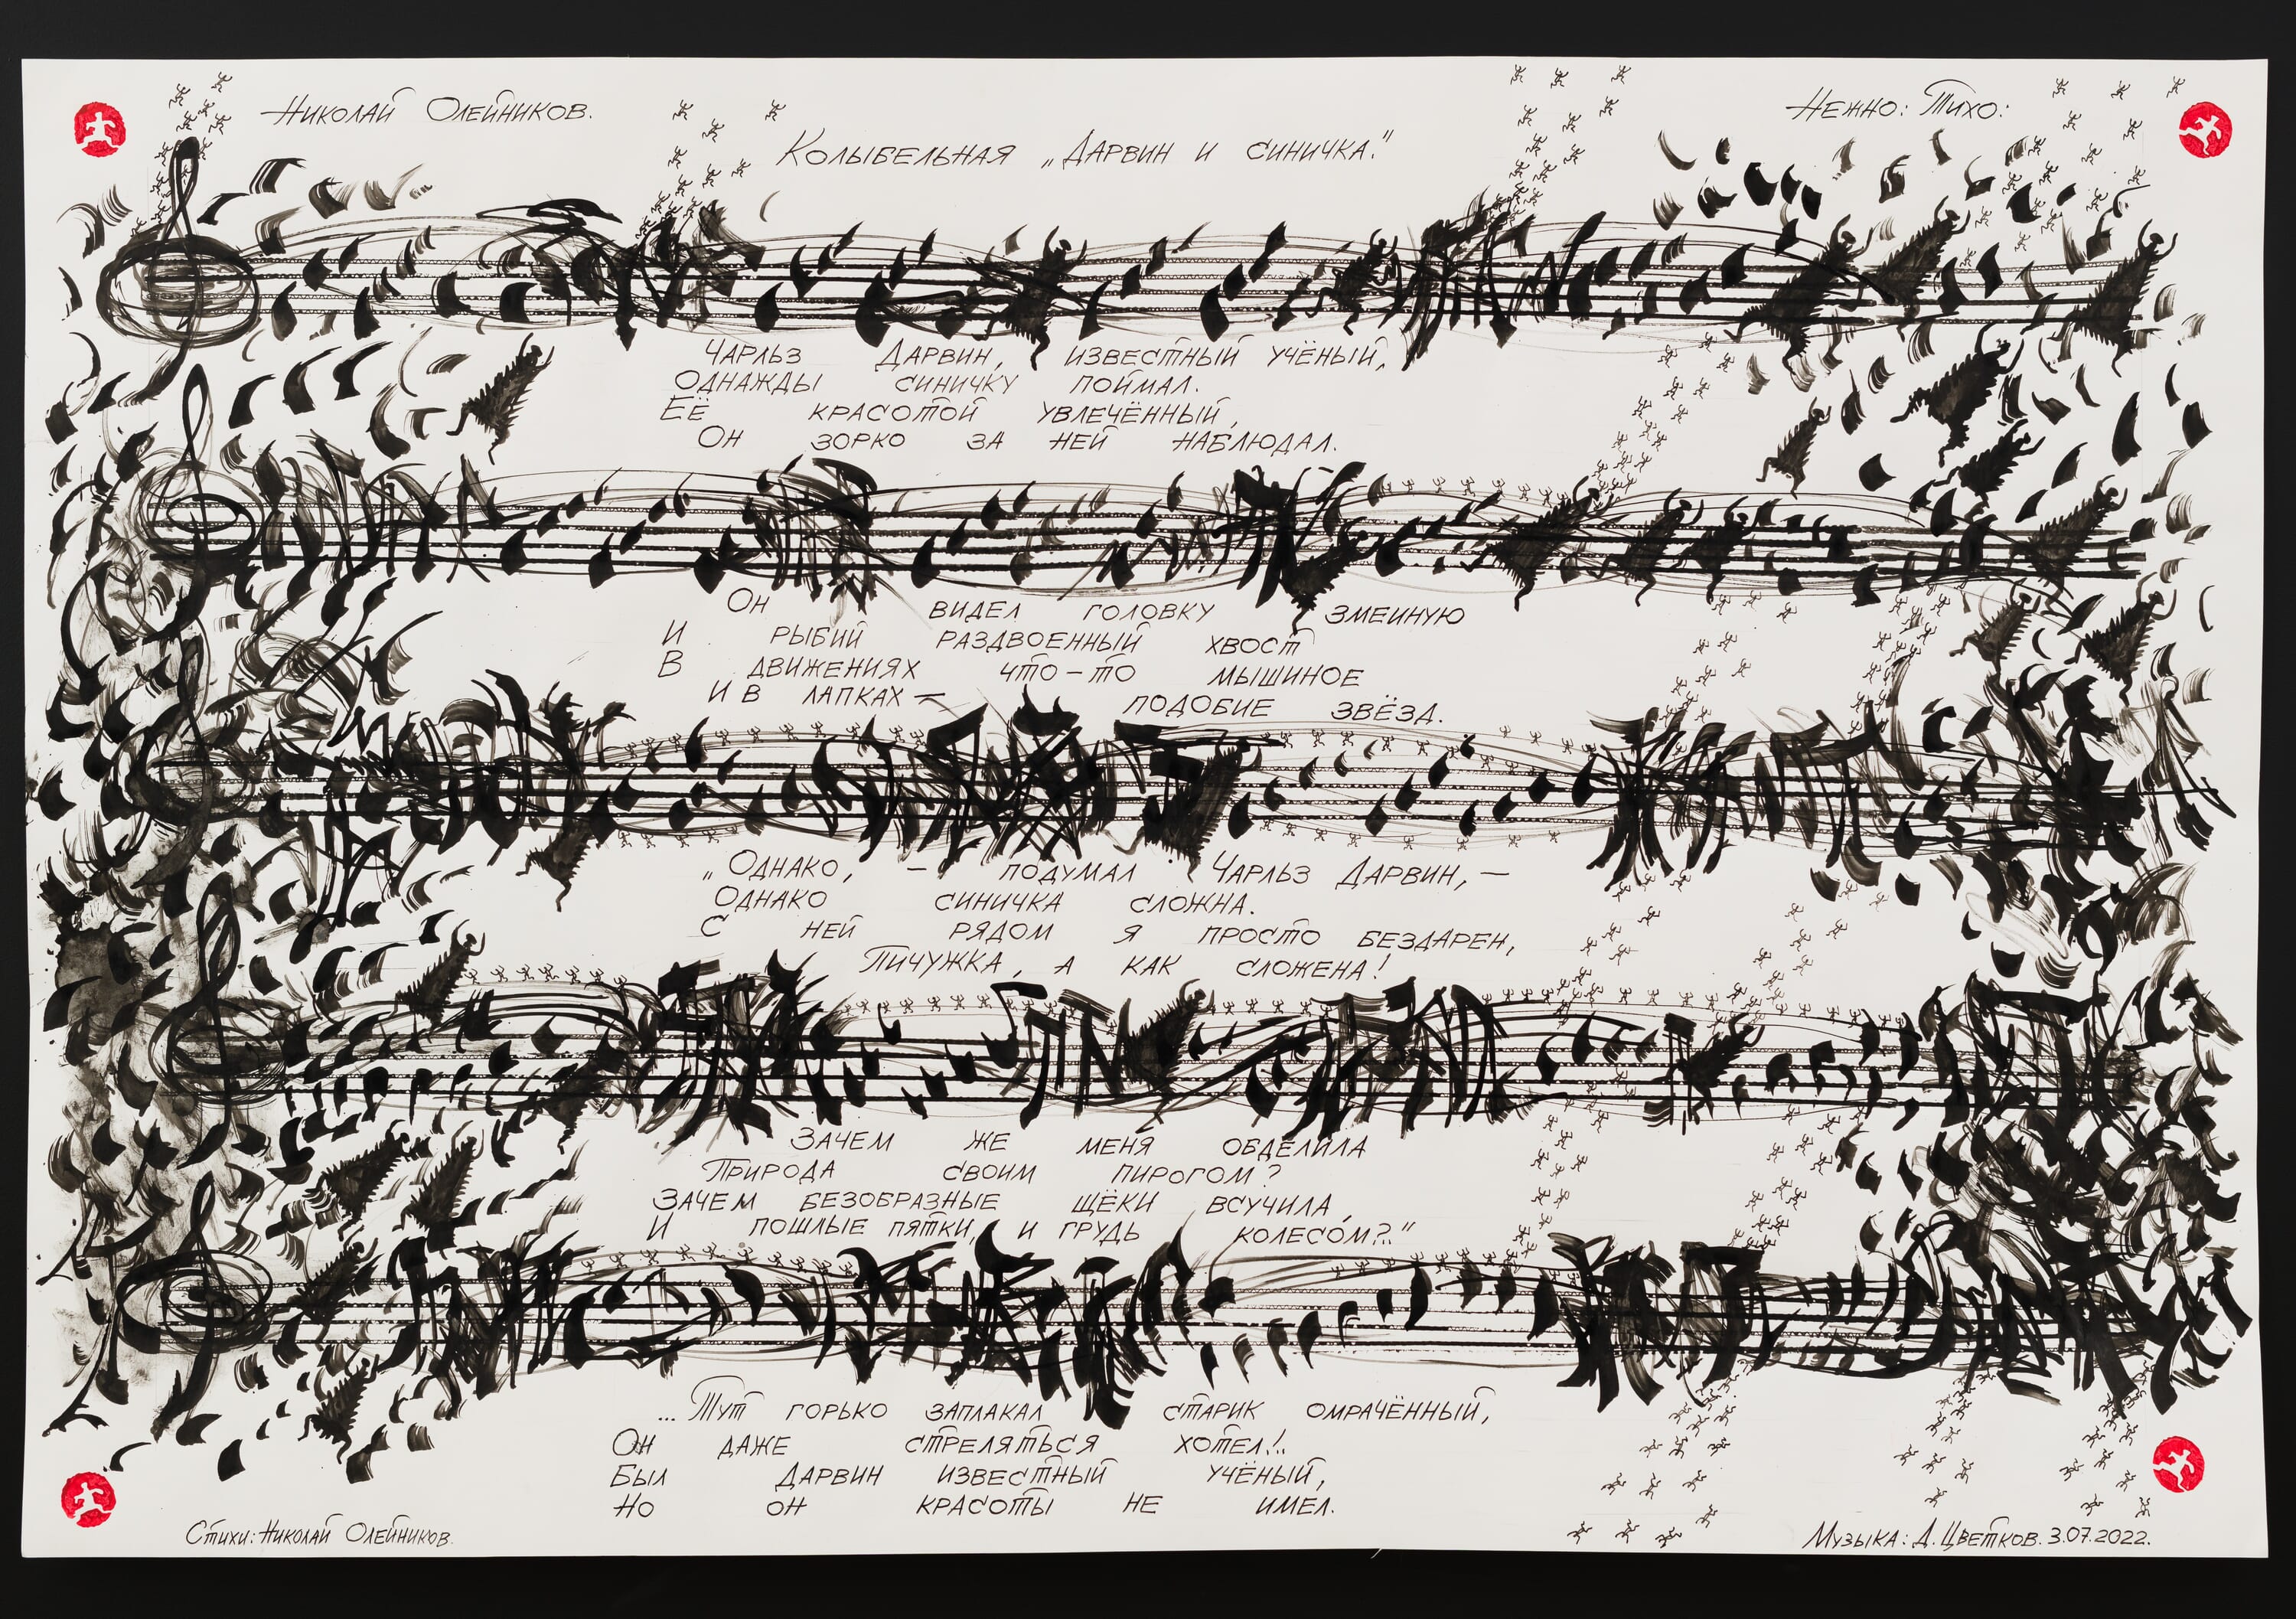 Николай Олейников.
Нежно: Тихо:
Колыбельная „Дарвин и синичка."
Чарльз Дарвин, известный учёный,
Однажды синичку поймал.
Её красотой увлечённый,
Он зорко за ней наблюдал.
Он видел головку змеиную
И рыбий раздвоенный хвост
В движениях что-то мышиное
И в лапках — подобие звёзд.
„Однако, — подумал Чарльз Дарвин, —
Однако синичка сложна.
С ней рядом я просто бездарен,
Пичужка, а как сложена!
Зачем же меня обделила
Природа своим пирогом?
Зачем безобразные щёки всучила,
И пошлые пятки, и грудь колесом?.."
...Тут горько заплакал старик омрачённый,
Он даже стреляться хотел!..
Был Дарвин известный учёный,
Но он красоты не имел.
Стихи: Николай Олейников.
Музыка: Д. Цветков. 3.07.2022.